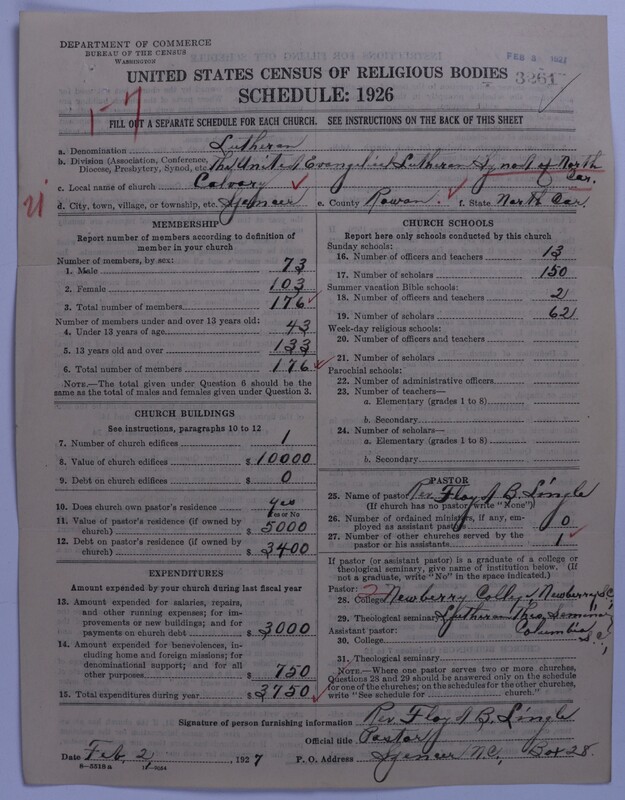 DEPARTMENT OF COMMERCE
BUREAU OF THE CENSUS
WASHINGTON
FEB 3 1927
3261
UNITED STATES CENSUS OF RELIGIOUS BODIES
SCHEDULE: 1926
1-7
FILL OUT A SEPARATE SCHEDULE FOR EACH CHURCH. SEE INSTRUCTIONS ON THE BACK OF THIS SHEET
a. Denomination Lutheran
b. Division (Association, Conference, Diocese, Presbytery, Synod, etc. The United Evangelical Lutheran Synod of North Car.
c. Local name of church Calvary
d. City, town, village, or township, etc. Spencer e. County Rowan. f. State North Car.
MEMBERSHIP
Report number of members according to definition of
member in your church
Number of members, by sex:
1. Male 73
2. Female 103
3. Total number of members 176
Number of members under and over 13 years old:
4. Under 13 years of age 43
5. 13 years old and over 133
6. Total number of members 176
NOTE.—The total given under Question 6 should be
same as the total of males and females given under Question 3.
CHURCH BUILDINGS
See instructions, paragraphs 10 to 12
7. Number of church edifices 1
8. Value of church edifices $ 10000
9. Debt on church edifices $ 0
10. Does church own pastor's residence? yes
Yes or No
11. Value of pastor's residence (if owned by
church) $ 5000
12. Debt on pastor's residence (if owned by
church) $ 3400
EXPENDITURES
Amount expended by your church during last fiscal year
13. Amount expended for salaries, repairs,
and other running expenses; for im-
provements or new buildings; and for
payments on church debt $ 3000
14. Amount expended for benevolences, in-
cluding home and foreign missions; for
denominational support; and for all
other purposes $ 750
15. Total expenditures during year $ 3750
CHURCH SCHOOLS
Report here only schools conducted by this church
Sunday schools:
16. Number of officers and teachers 13
17. Number of scholars 150
Summer vacation Bible schools:
18. Number of officers and teachers 2
19. Number of scholars 62
Week-day religious schools:
20. Number of officers and teachers
21. Number of scholars
Parochial schools:
22. Number of administrative officers
23. Number of teachers—
a. Elementary (grades 1 to 8)
b. Secondary
24. Number of scholars—
a. Elementary (grades 1 to 8)
b. Secondary
PASTOR
25. Name of pastor Rev. Floyd B. Lingle
(If church has no pastor, write "None")
26. Number of ordained ministers, if any, em-
ployed as assistant pastors 0
27. Number of other churches served by the
pastor or his assistants 1
If pastor (or assistant pastor) is a graduate of a college or
theological seminary, give name of institution below. (If
not a graduate, write "No" in the space indicated.)
Pastor:
28. College Newberry College, Newberry, S.C.
29. Theological seminary Lutheran Theo. Seminary
Assistant pastor: Columbia
30. College S.C.
31. Theological seminary
NOTE.—Where one pastor serves two or more churches,
Questions 28 and 29 should be answered only on the schedule
for one of the churches; on the schedules for the other churches,
write "See schedule for church."
Signature of person furnishing information Rev. Floyd B. Lingle
Official title Pastor
Date Feb, 2, 1927 P. O. Address Spencer N.C., Box 28.
8—5518 a